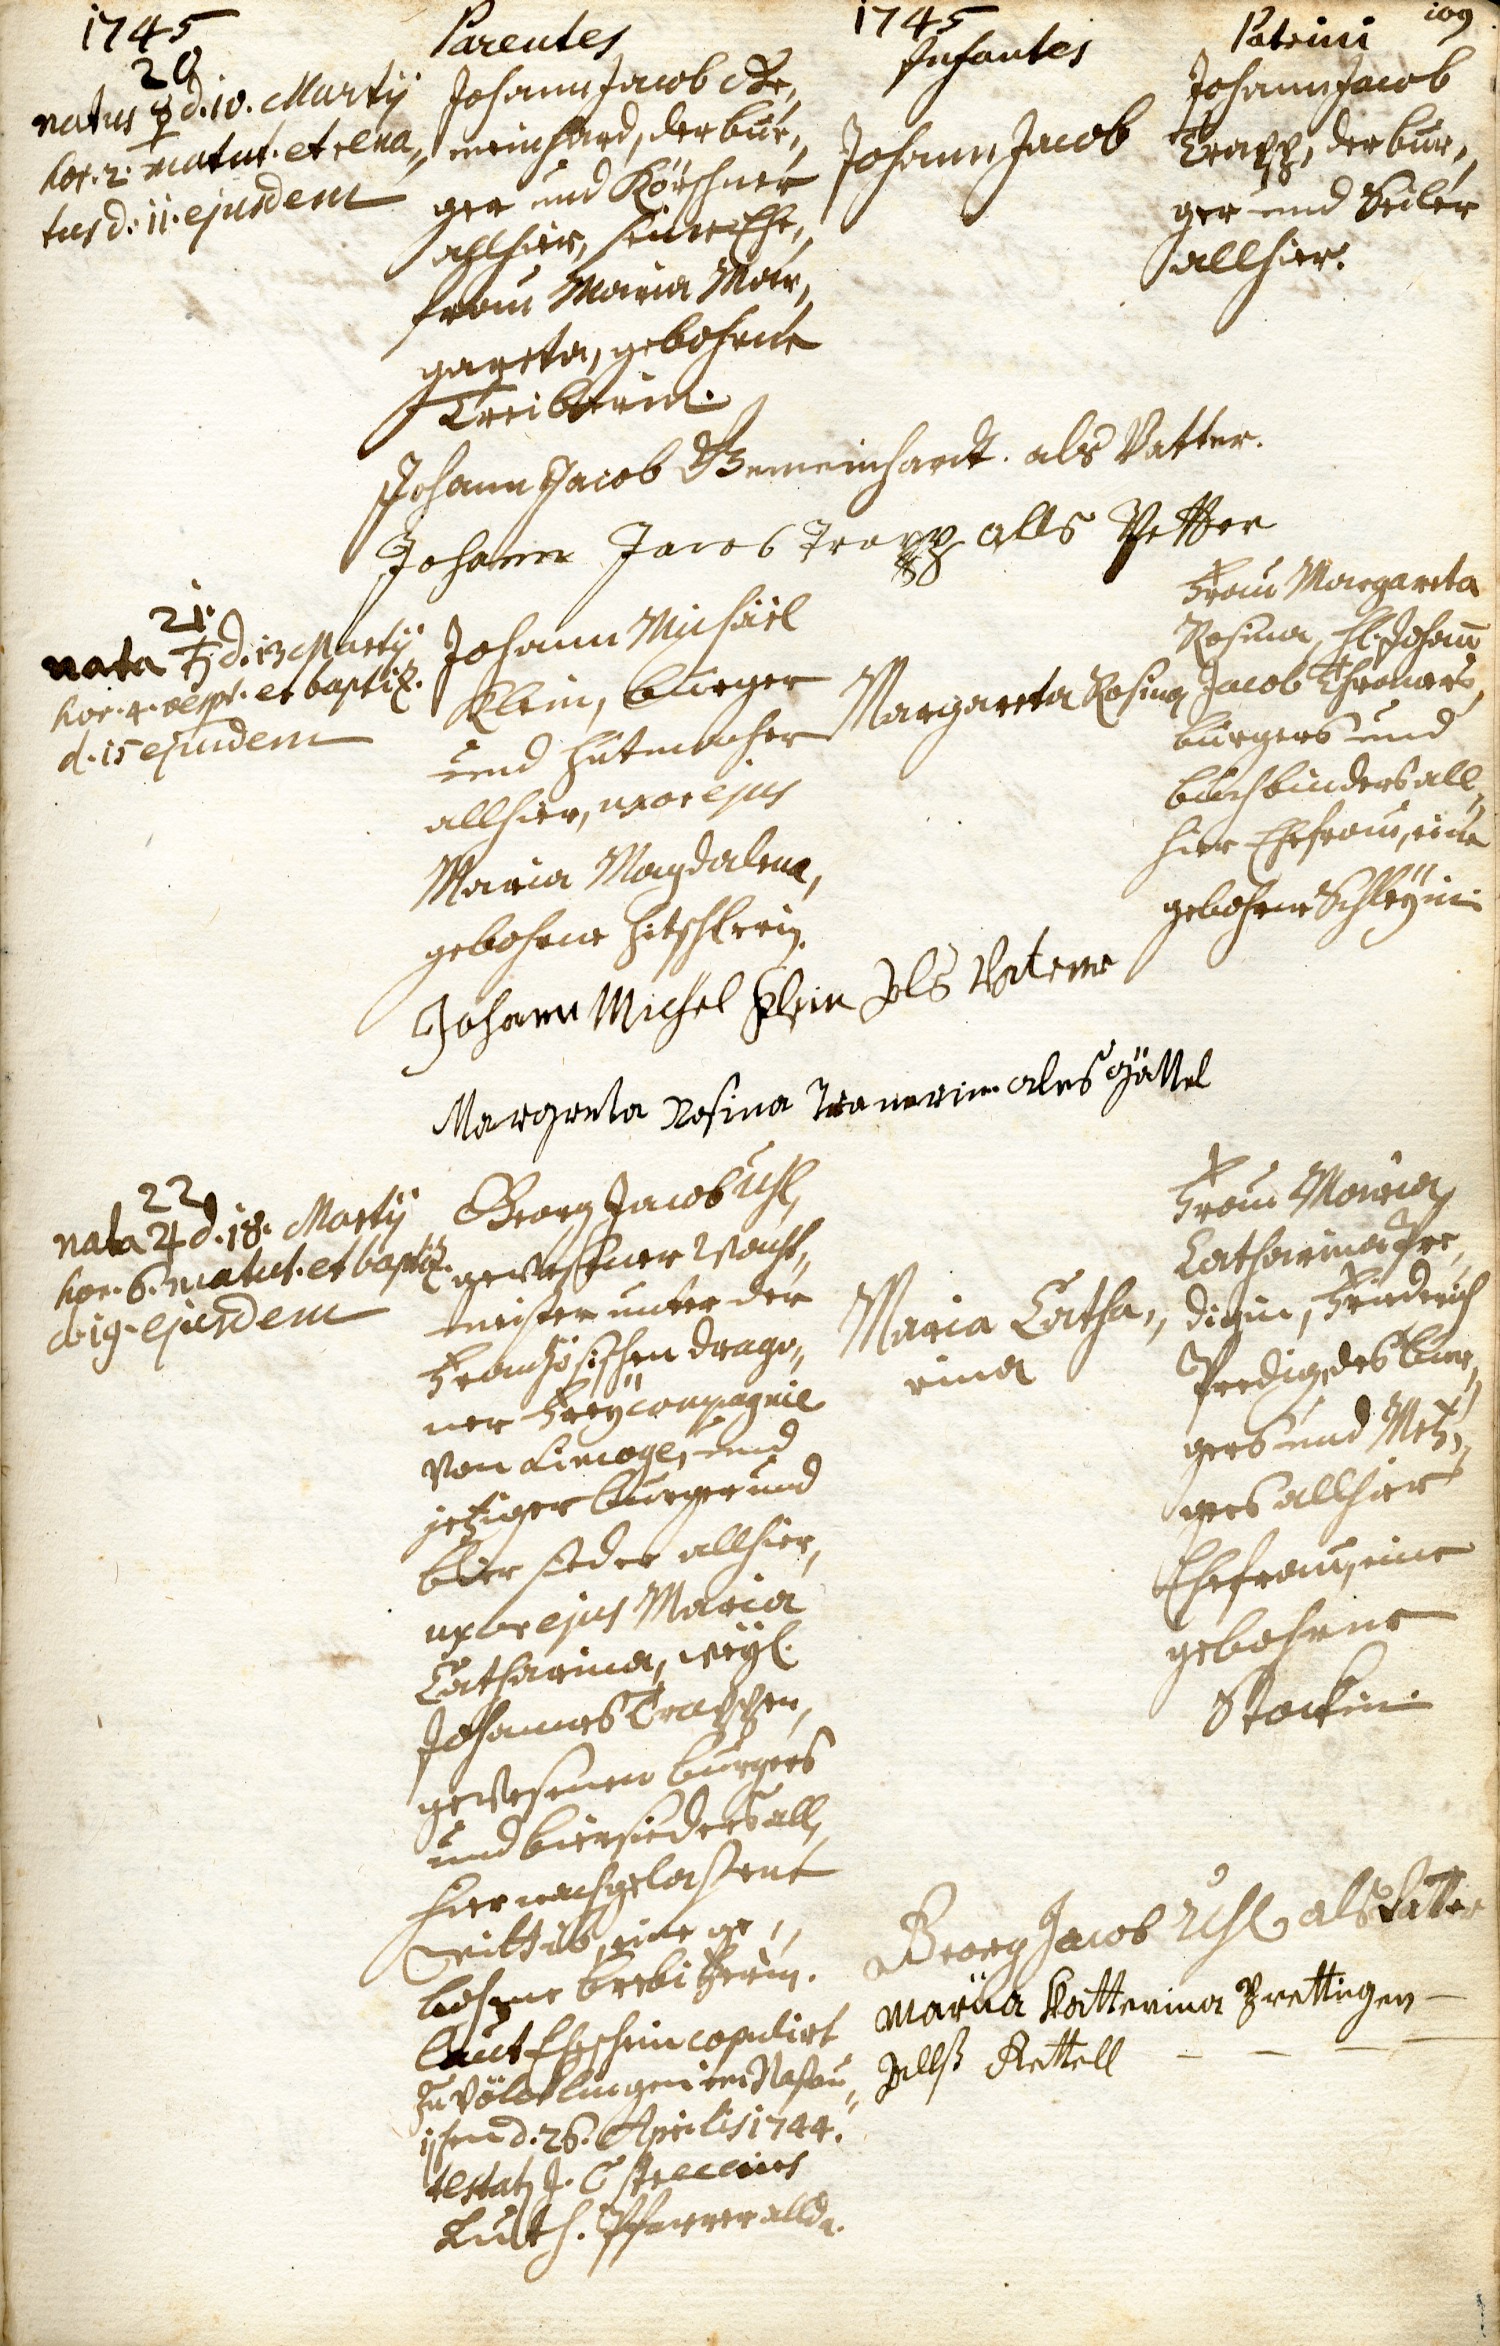 1745
Parentes
1745
Infantes
Patrini
109
20
natus ☿ d. 10. Martij
hor. 2. matut. et rena„
tus d. 11. ejusdem
Johann Jacob Ge„
meinhard, der bur„
ger und Körschner
allhier, seine Ehe„
frau Maria Mar„
gareta, gebohrne
Treiberin.
Johann Jacob
Johann Jacob
Trapp, der bur„
ger und Seiler
allhier.
Johann Jacob Gemeinhardt. als Vatter.
Johann Jacob Trapp alls Petter
21.
nata ♄ d. 13 Martij
hor. 4. vesp. et baptiz.
d. 15 ejusdem
Johann Michäel
Klein, burger
und hutmacher
allhier, uxor ejus
Maria Magdalena,
gebohrne
Margareta Rosina
Frau Margareta
Rosina, H. Johann
Jacob
burgers und
buchbinders all„
hier Ehefrau, eine
gebohrne Schleyin
Johann Michel Klein Als Vatter
Margreta Rosina als Göttel
22
nata ♃ d. 18. Martij
hor. 6. matut. et baptiz.
d. 19. ejusdem
Georg Jacob Uhl,
gewesener Wacht„
meister unter der
Frantzösischen drago„
ner Freÿcompagnie
von Limoge, und
jetziger burger und
bier sieder allhier,
uxor ejus Maria
Catharina, weÿl.
Johannes Trappen,
gewesenen burgers
und biersieders all„
hier nachgelassene
Wittib, eine ge„
bohrne
laut Eheschein copulirt
zu Völcklingen im Nassau„
ischen d. 26. Aprilis 1744.
testat J. C.
Luth. Pfarrer allda.
Maria Catha„
rina
Frau Maria
Catharina Pre„
digin, Friederich
Predig, des bur„
gers und Metz„
gers allhier
Ehefrau, eine
gebohrne
Stockin.
Georg Jacob Uhl als Vatter
Maria Katterina Prettigen
Allß